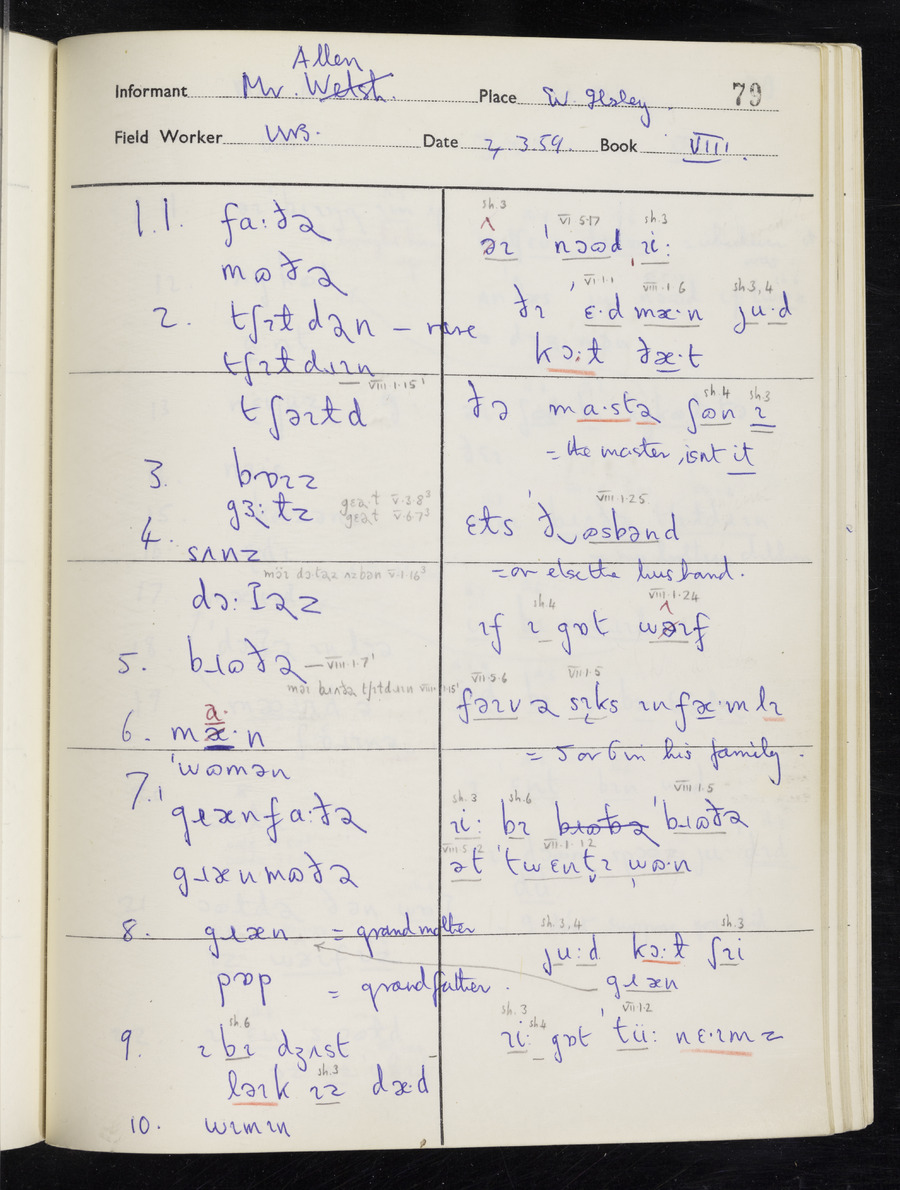 Allen
Informant Mr. Welsh. Place W. Ilsley. 79
Field Worker WB. Date 2.3.59. Book VIII.
1.1. fa:ðə
mɷðə
2. tʃɪɫdən – rare
tʃɪɫdɹɪn VIII.1.15¹
tʃəɪɫd
3. bɒɪz
gɜ:ɫz gɛəɫ V.3.8³
gɛəɫ V.6.7³
4. sʌnz
dɔ:Iəz
5. bɹɷðə – VIII.1.7¹
6. mæ·n
a·
7.1 'wɷmən
gɹænfa:ðə
gɹænmɷðə
8. gɹæn = grandmother
pɒp = grandfather.
sh.6
9. ɪ bɪ dʒʌst
sh.3
ləɪk ɪz dæ·d
10. wɪmɪn
sh.3 VI 5.17 sh.3
əɪ 'nɔɷd ɪi:
VI.1.1 VIII.1.6 sh 3,4
ðɪ ɛ·d mæ·n ȷu·d
kɔ:ɫ ðæ·t
sh 4 sh 3
ðə ma·stə ʃɷn ɪ
= the master, isnt it
VIII.1.25
ɛts ðɷsbənd
= or else the husband.
sh.4 VIII.1.24
ɪf ɪ gɒt wəɪf
VII.5.6 VII.1.5
fəɪv ə sɪks ɪn fæ·mlɪ
= 5 or 6 in his family.
sh.3 sh.6 VIII.1.5
ɪi: bɪ bɹɷðə 'bɹɷðə
VIII.5.2 VII.1.12
ət 'twɛntɪ wɷ·n
sh.3,4 sh.3
ȷu:d kɔ:ɫ ʃɪi
gɹæn
sh.3 sh4 VII.1.2
ɪi: gɒt 'tü: nɛ·ɪmz